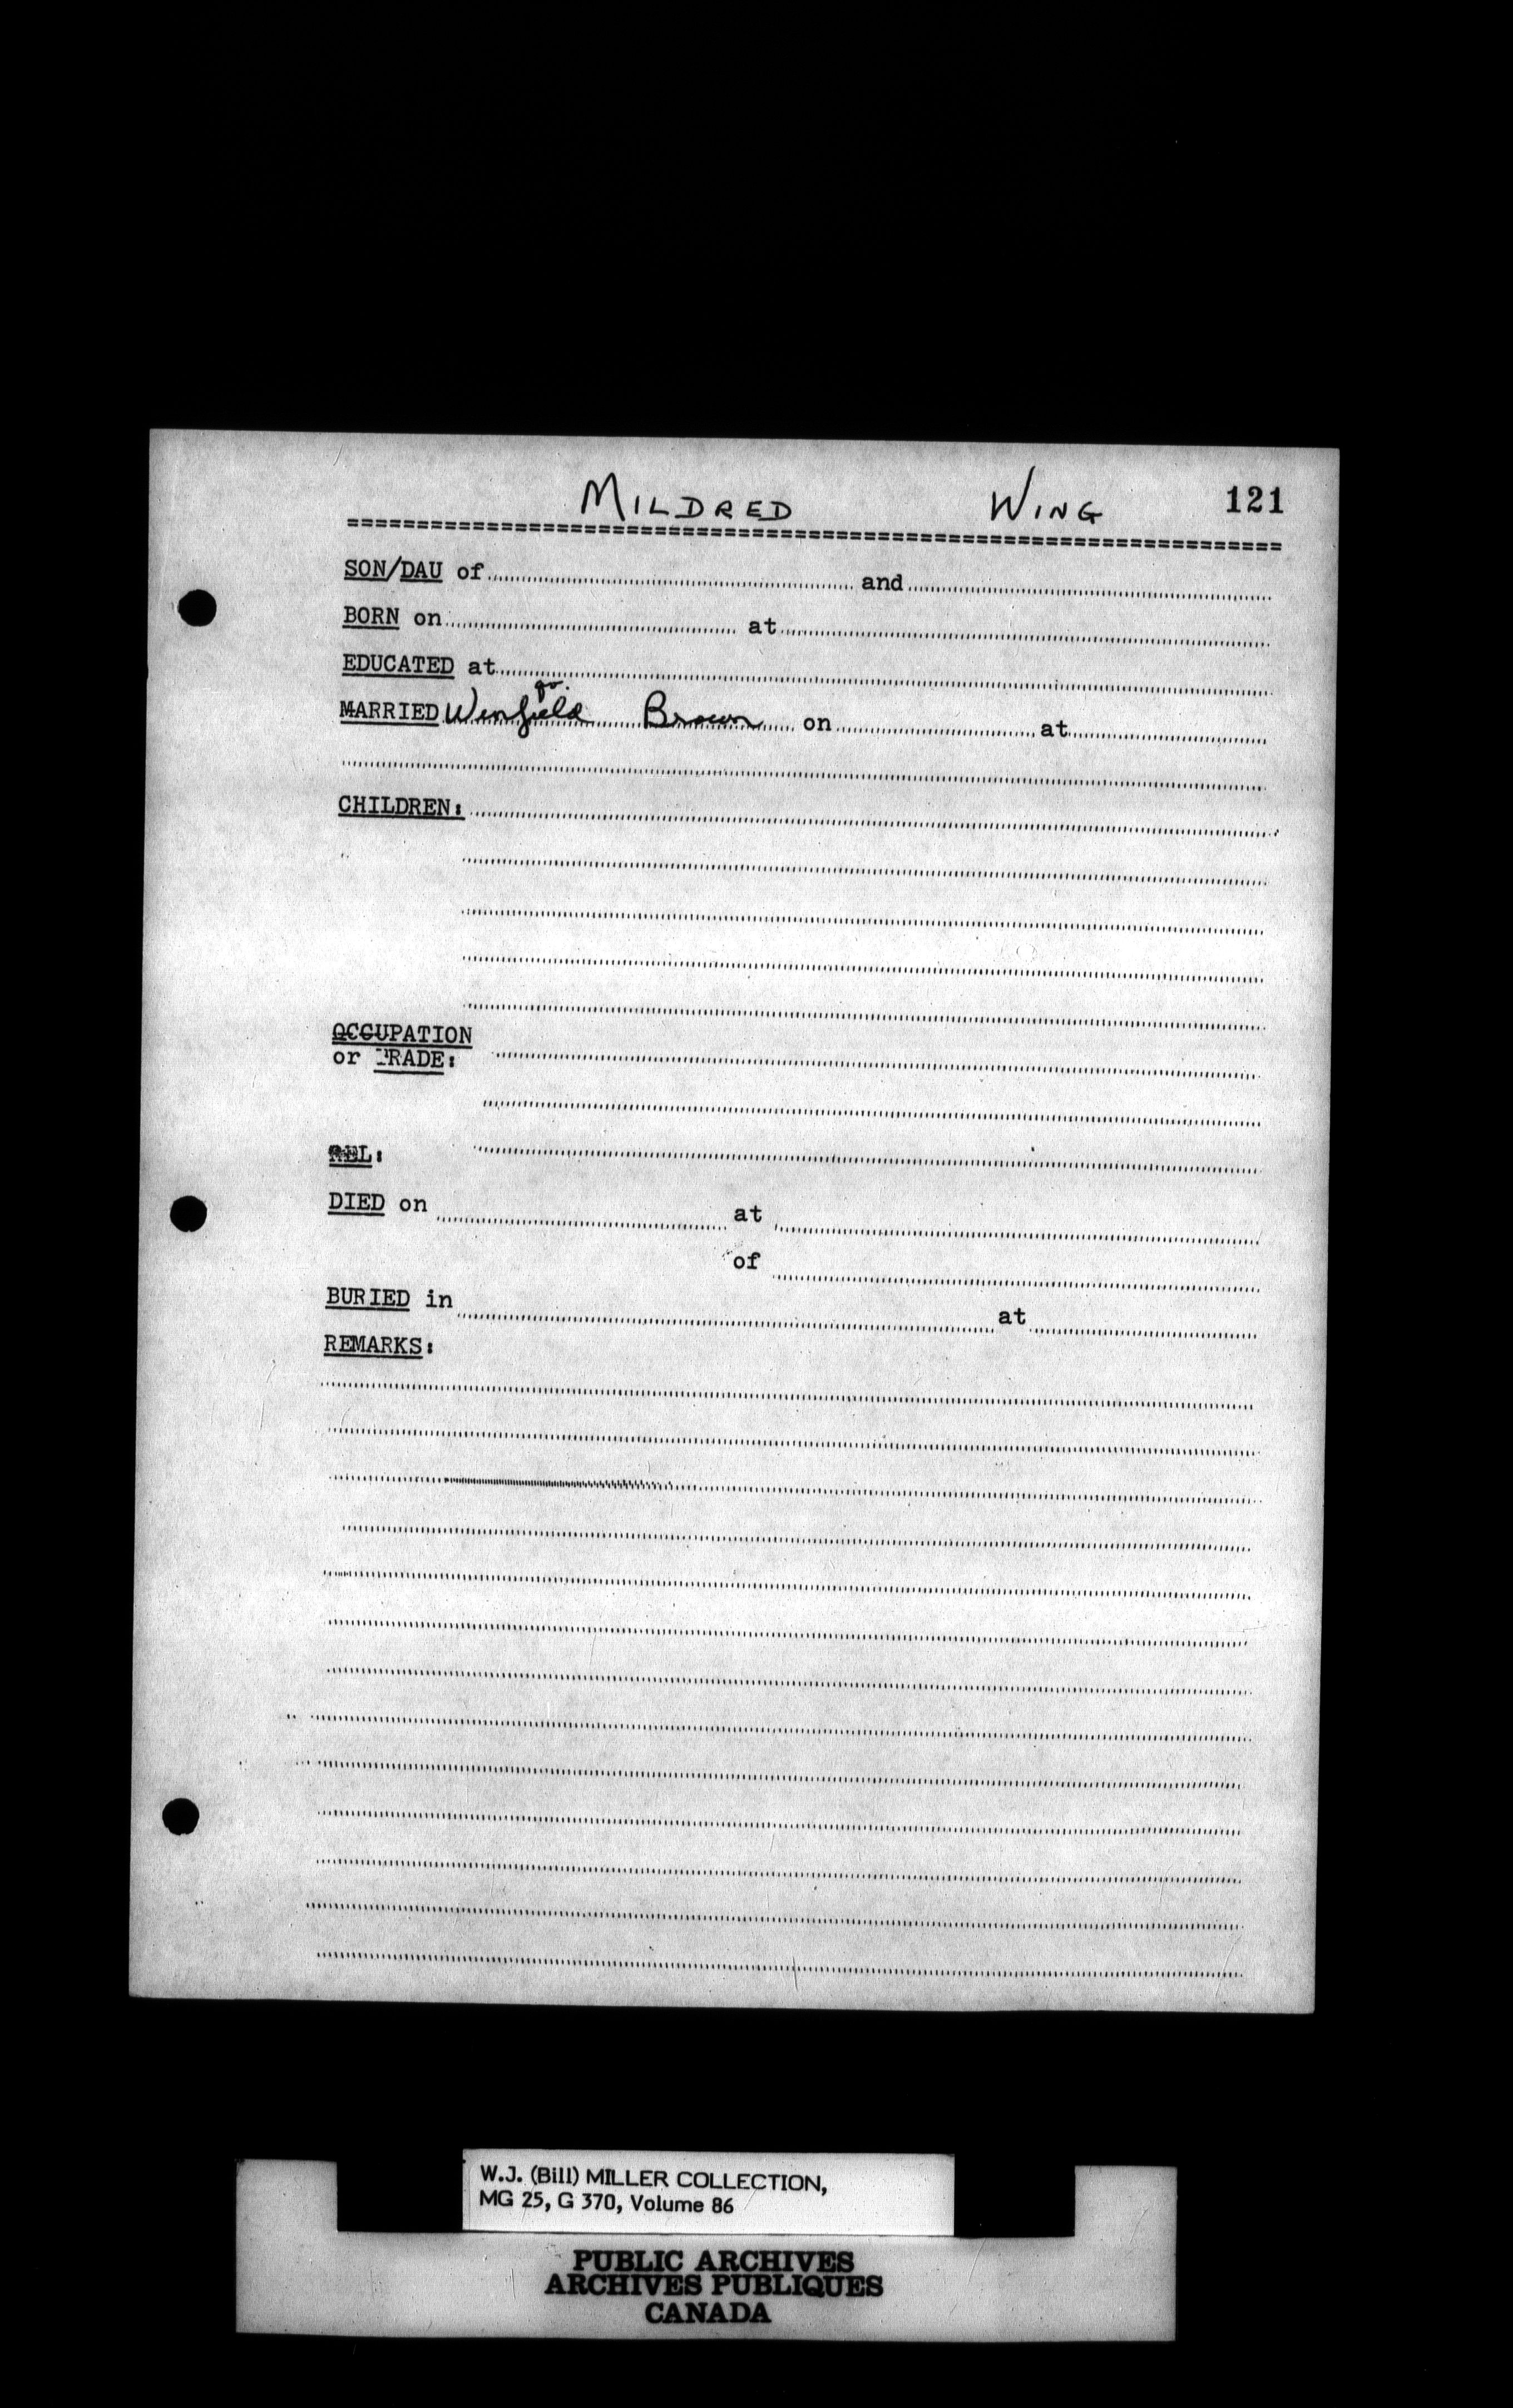 MILDRED WING 121
SON/DAU of and
BORN on at
EDUCATED at
MARRIED Winfield Brown on at
CHILDREN:
OCCUPATION
or TRADE:
REL:
DIED on at
of
BURIED in at
REMARKS:
W.J. (Bill) MILLER COLLECTION,
MG 25, G 370, Volume 86
PUBLIC ARCHIVES
ARCHIVES PUBLIQUES
CANADA